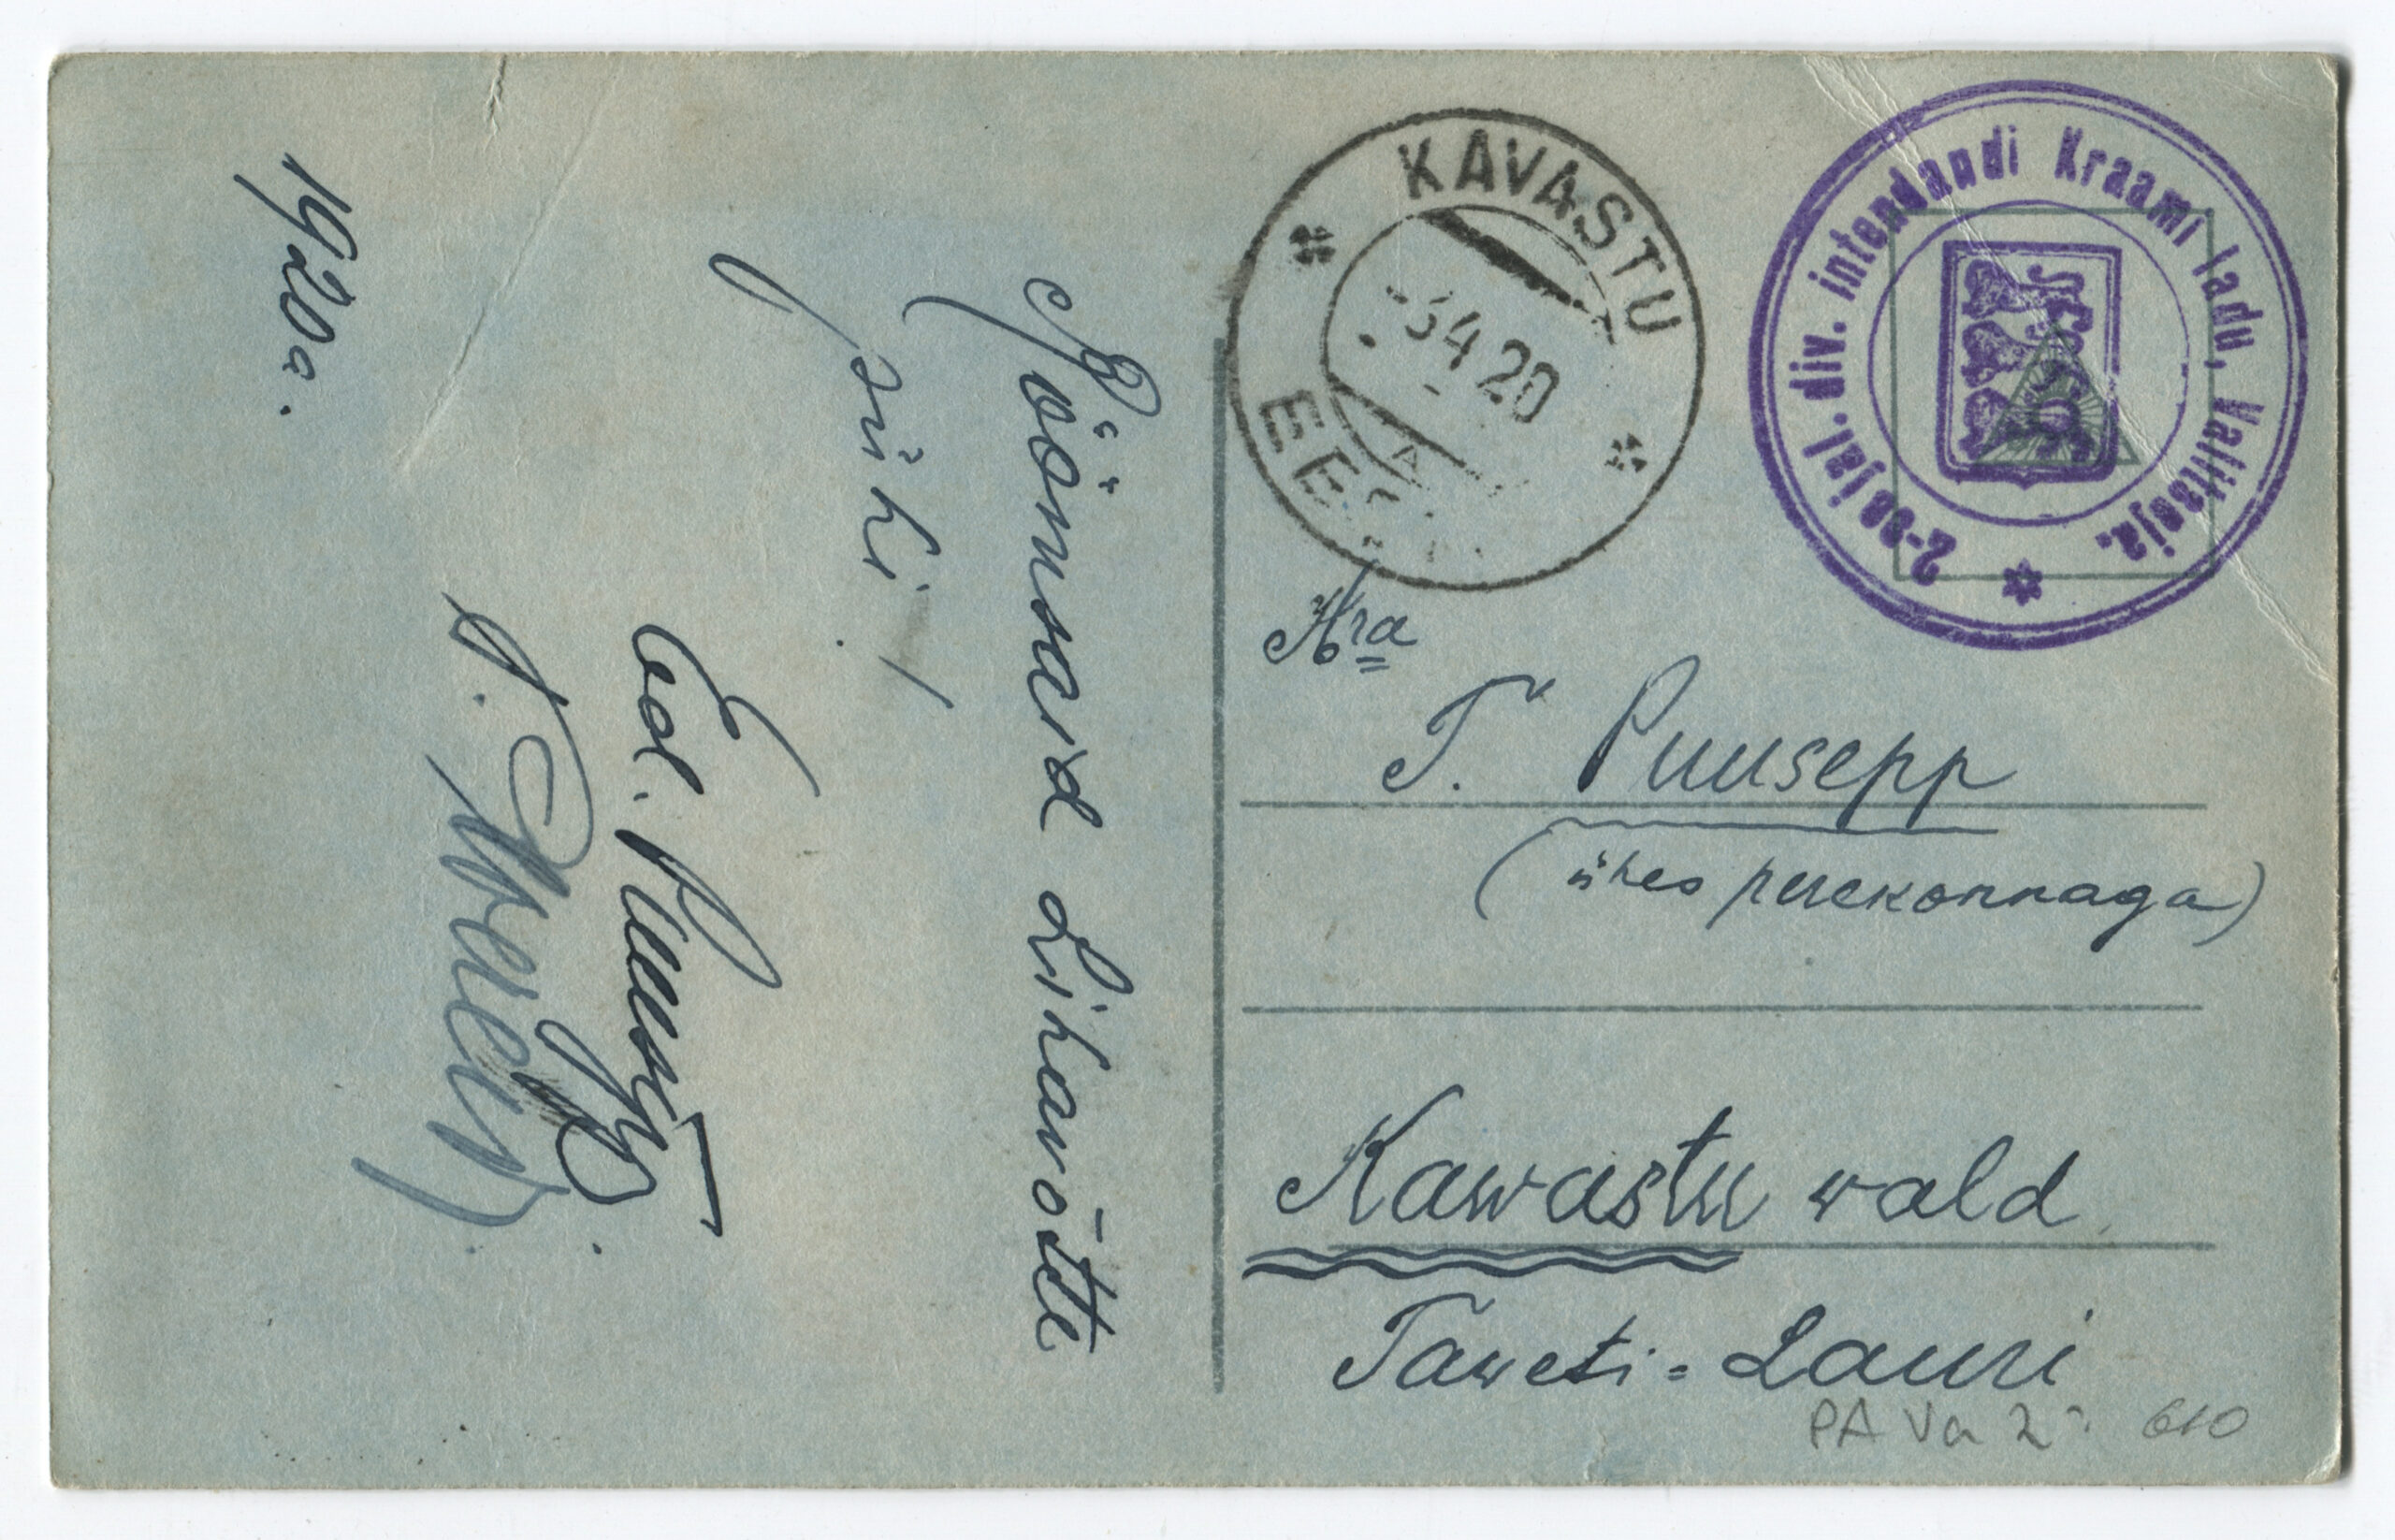 Rõõmsaid Lihavõtte
pühi!
Ed. Puusepp.
J.
1920 a.
KAVASTU
-3 4 20
A
EESTI
2-se jal. div. intendandi Kraami ladu, Valitseja.
Hra
T. Puusepp
(ühes perekonnaga)
Kawastu wald
Taweti-Lauri
PA Va 2 610